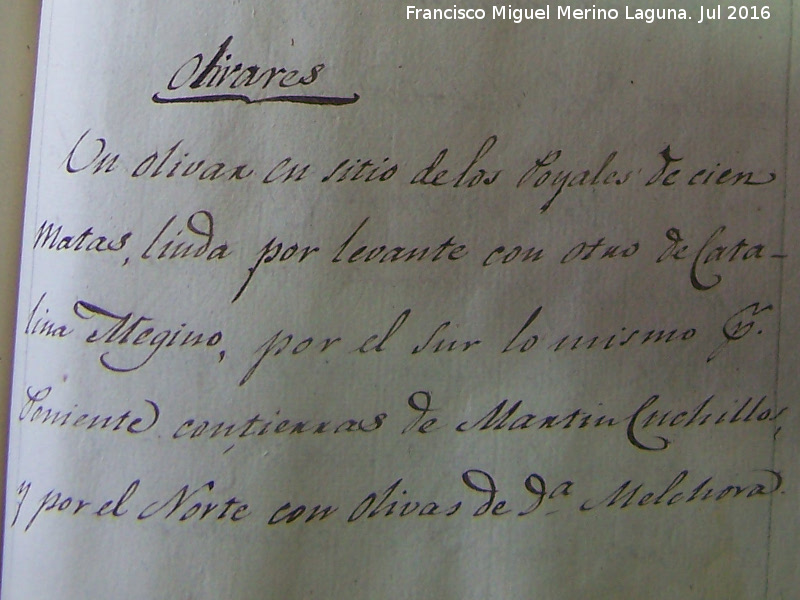 Francisco Miguel Merino Laguna. Jul 2016
Olivares
Un olivar en sitio de los Poyales de cien
matas, linda por levante con otro de Cata-
lina Megino, por el sur lo mismo p.
Poniente con tierras de Martin Cuchillos,
y por el Norte con olivas de Dª Melchora